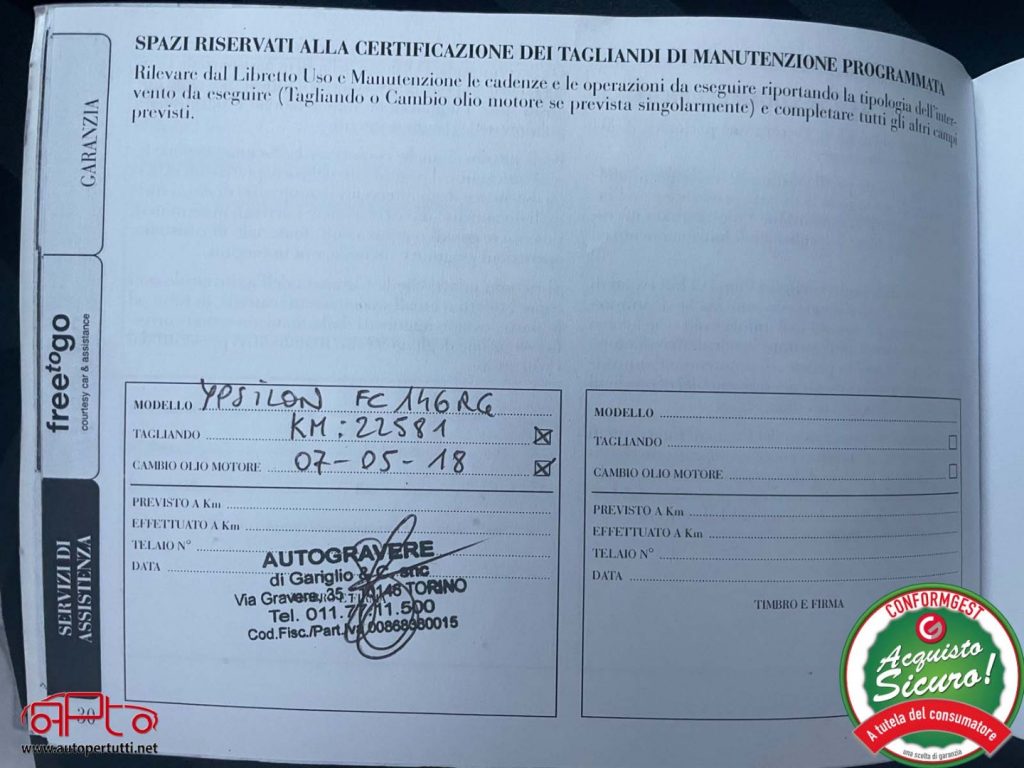 SPAZI RISERVATI ALLA CERTIFICAZIONE DEI TAGLIANDI DI MANUTENZIONE PROGRAMMATA
Rilevare dal Libretto Uso e Manutenzione le cadenze e le operazioni da eseguire riportando la tipologia dell'inter-
vento da eseguire (Tagliando o Cambio olio motore se prevista singolarmente) e completare tutti gli altri campi
previsti.
GARANZIA
freetogo
courtesy car & assistance
SERVIZI DI
ASSISTENZA
30
MODELLO YPSILON FC146RG
TAGLIANDO KM: 22581
CAMBIO OLIO MOTORE 07-05-18
PREVISTO A Km
EFFETTUATO A Km
TELAIO N°
DATA
AUTOGRAVERE
di Gariglio & C. snc
Via Gravere, 35 - 10146 TORINO
Tel. 011.77.11.500
Cod.Fisc./Part.Iva
MODELLO
TAGLIANDO
CAMBIO OLIO MOTORE
PREVISTO A Km
EFFETTUATO A Km
TELAIO N°
DATA
TIMBRO E FIRMA
www.autopertutti.net
CONFORMGEST
Acquisto
Sicuro!
A tutela del consumatore
una scelta di garanzia